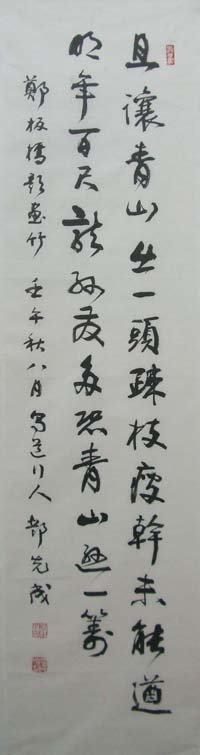 且讓青山出一頭疎枝瘦幹未能遒
明年百尺龍孫發多恐青山遜一籌
鄭板橋題畫竹 壬午秋八月 道行人 先成